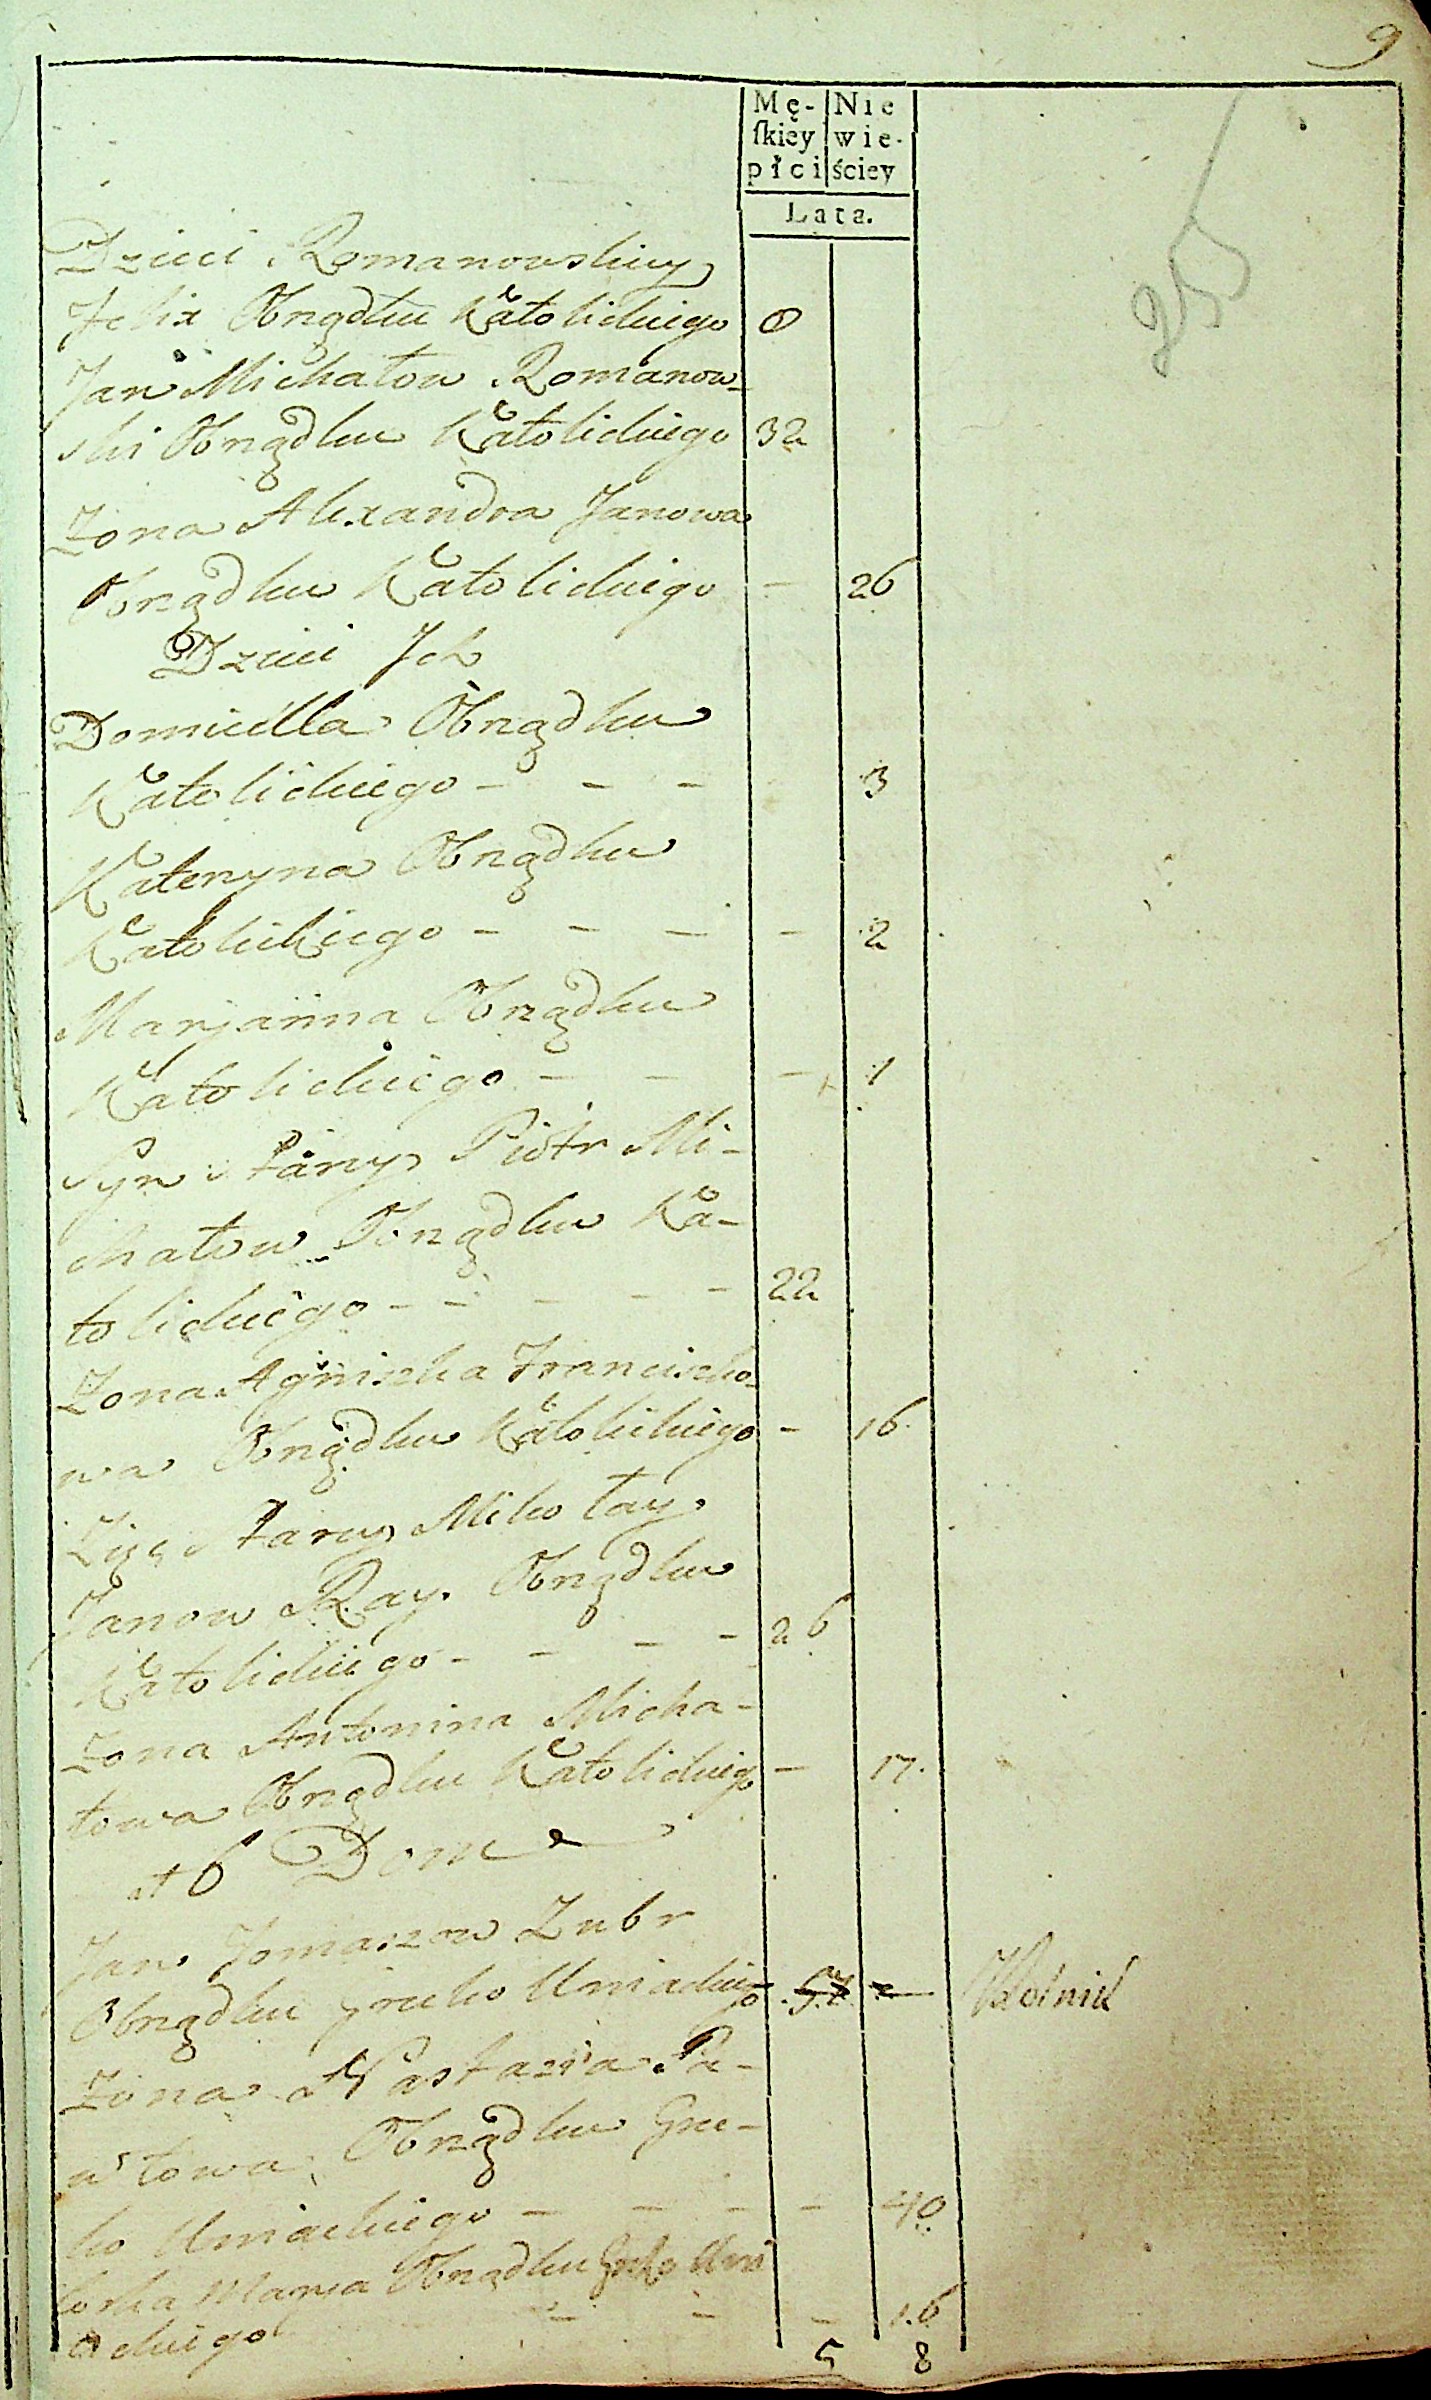 9
Mę- Nie
skiey wie-
płci ściey
Lata.
25
Dzieci Romanowskiey
Felix Obrządku Katolickiego 8
Jan Michałow Romanow-
ski Obrządku Katolickiego 32
Zona Alexandra Janowa
Obrządku Katolickiego - 26
Dzieci Jch
Domicella Obrządku
Katolickiego - - - 3
Kateryna Obrządku
Katolickiego - - - - 2
Marjanna Obrządku
Katolickiego - - - 1
Syn Stary Piotr Mi-
chałow Obrządku Ka-
tolickiego - - - - - 22
Zona Agniszka Franciszko-
wa Obrządku Katolickiego - 16
Zięć Stary Mikołay
Janow Ray. Obrządku
Katolickiego - - - - 26
Zona Antonina Micha-
łowa Obrządku Katolickiego - 17.
6 Dom
Jan Tomaszow Zubr
Obrządku greko Uniackiego 57
Zona Nastazia Pa-
włowa Obrządku Gre-
ko Uniackiego - - - - 40
Corka Marya Obrządku Greko Uni
ackiego - - - 16
5 8